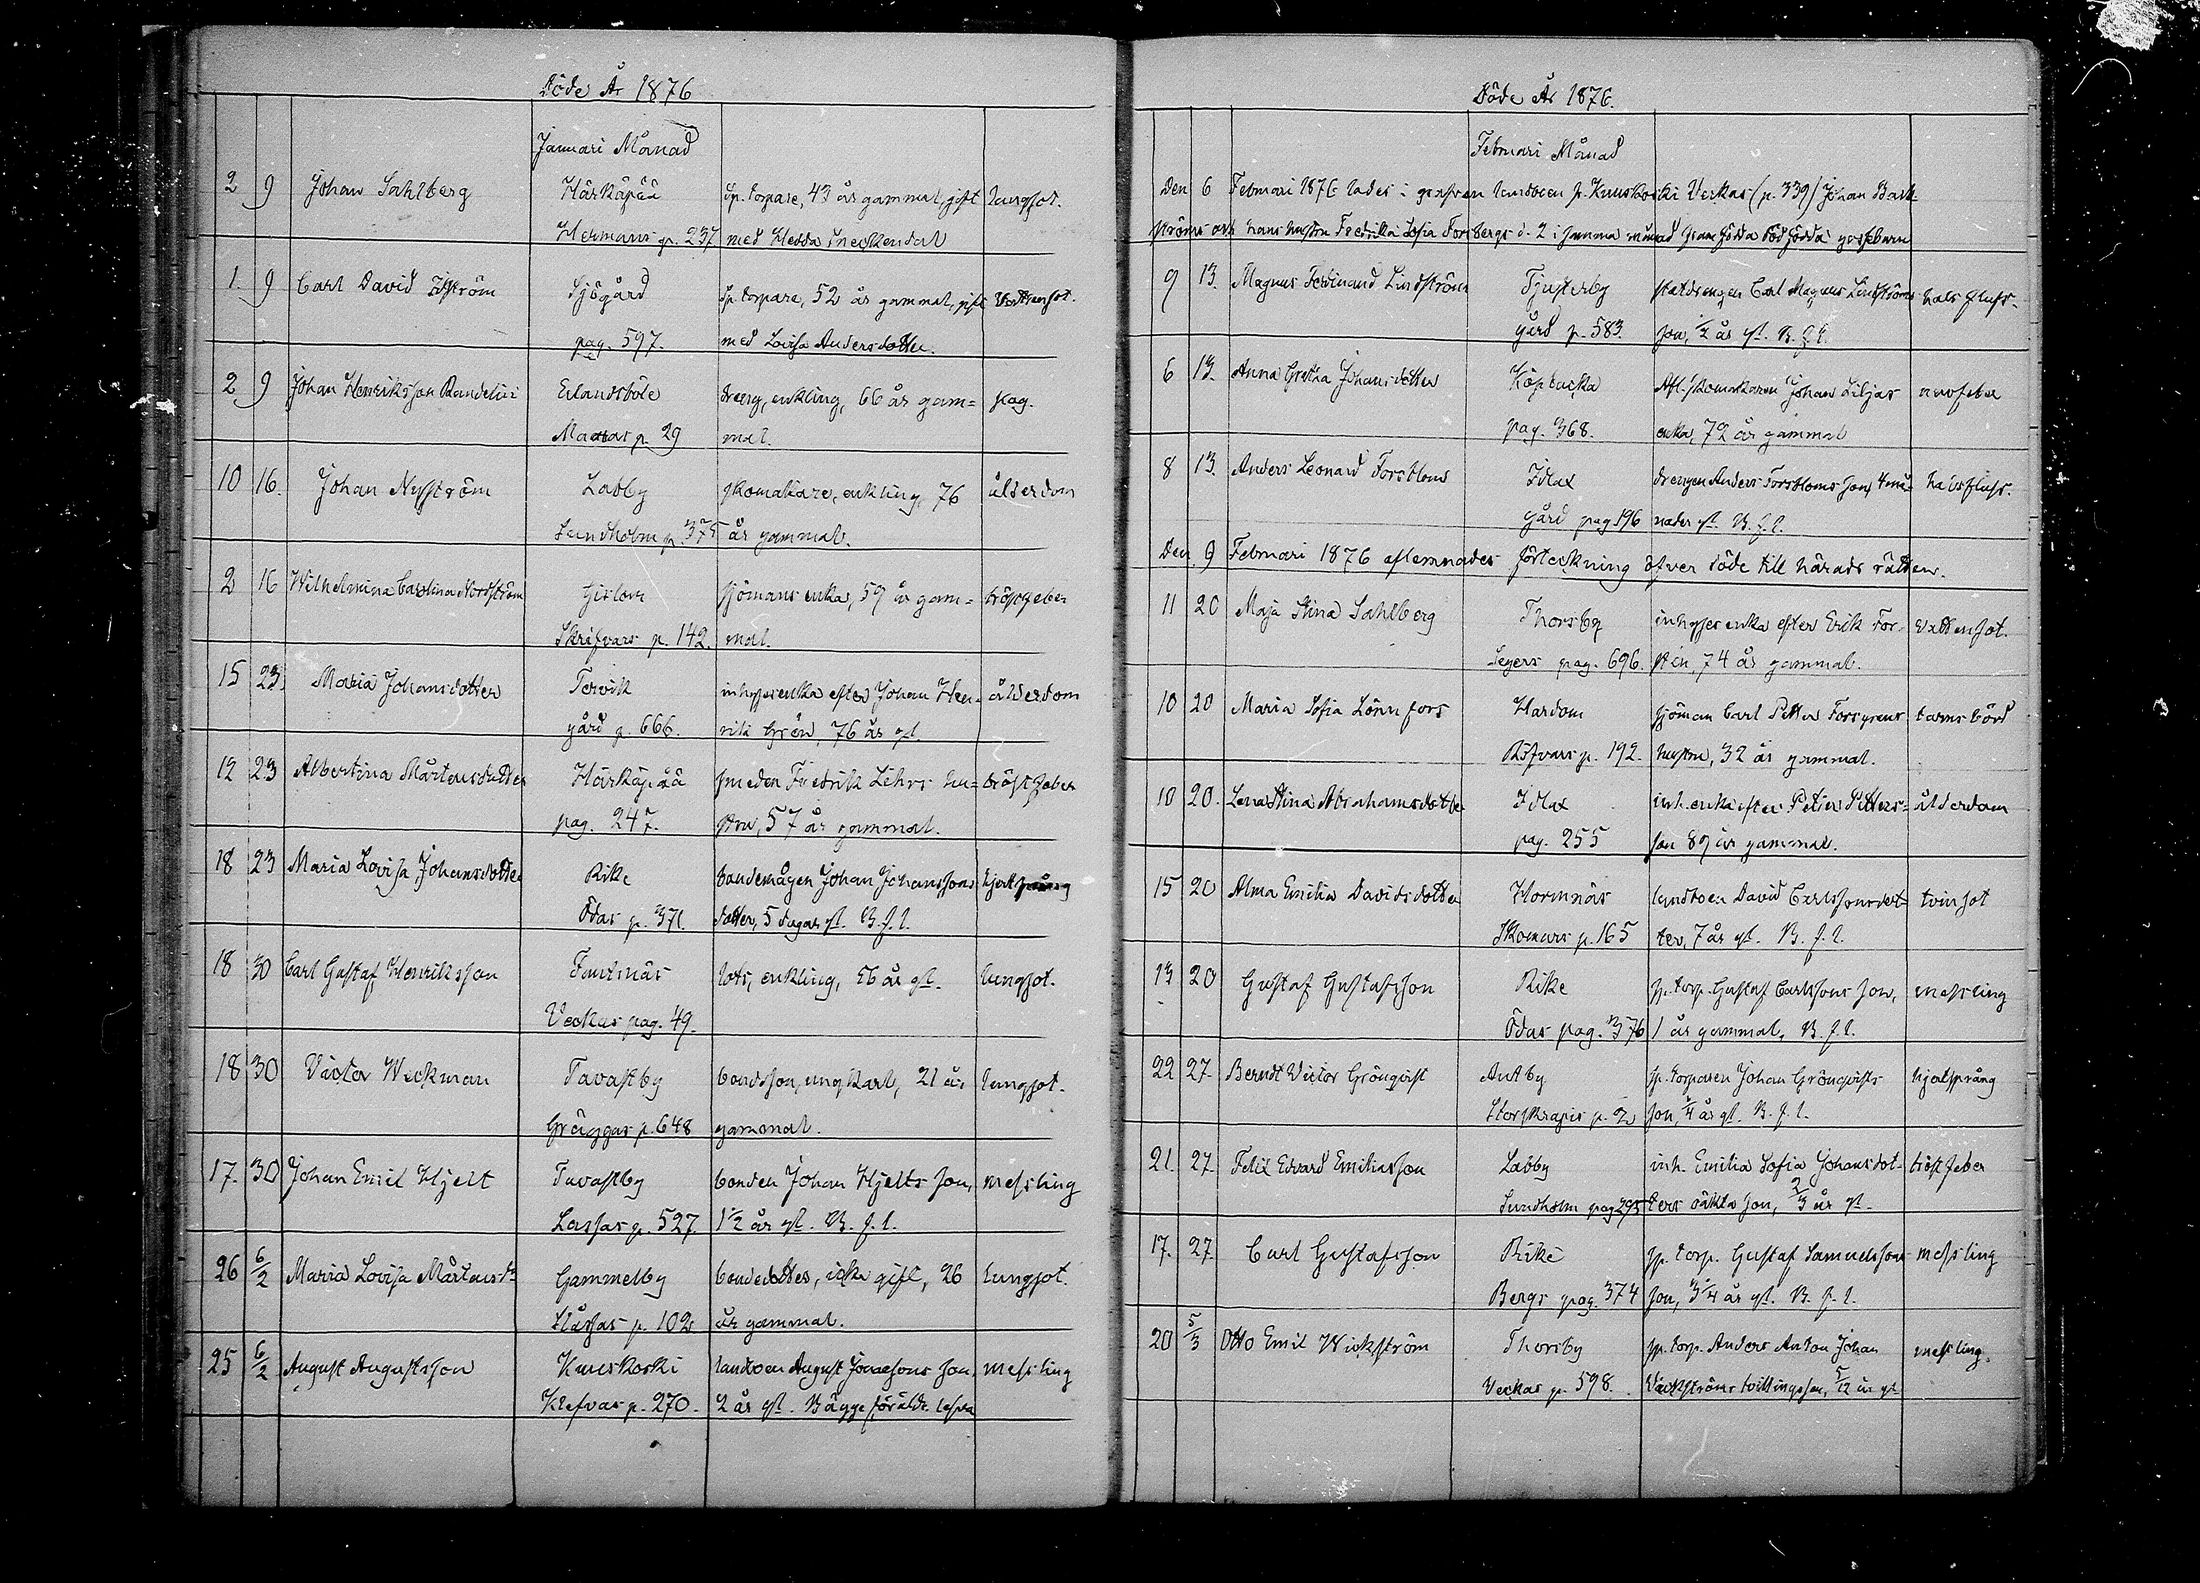 Döde År 1876
Januari Månad
2 9 Johan Sahlberg Härkäpää sp. torpare, 43 år gammal, gift lungsot.
Hermans p. 237 med Hedda Sneckendal
1. 9 Carl David Sjögård sp. torpare, 52 år gammal, gift vattensot.
pag. 597. med Lovisa Andersdotter.
2 9 Johan Henriksson Randelin Erlandsböle dreng, enkling, 66 år gam=
p. 29 mal.
10 16. Johan Nyström Labby skomakare, enkling, 76 ålderdom
Sundholm p. 375 år gammal.
2 16 Wilhelmina Carolina Nordström Gislom sjömans enka, 59 år gam= bröstfeber
Skrifvars p. 142. mal.
15 23. Maria Johansdotter Tervik inhyses enka efter Johan Hen- ålderdom
gård p. 666. rik Grön, 76 år gl.
12 23 Albertina Mårtensdotter Härkäpää smeden Fredrik Lihrs hu= bröstfeber
pag. 247. stru, 57 år gammal.
18 23 Maria Lovisa Johansdotter Rike bondemågen Johan Johanssons
Ödas p. 371. dotter, 5 dagar gl. B. f. l.
18 30 Carl Gustaf Henriksson Fantsnäs lots, enkling, 56 år gl. lungsot.
Veckas pag. 49.
18 30 Victor Weckman Tavastby bondson, ungkarl, 21 år lungsot.
Gräggas p. 648 gammal.
17. 30 Johan Emil Hjelt Tavastby bonden Johan Hjelts son, messling
Lassas p. 527. 1½ år gl. B. f. l.
26 6/2 Maria Lovisa Mårtensdr Gammelby bondedotter, icke gift, 26 lungsot.
Hässas p. 102 år gammal.
25 6/2 August Augustsson Kuuskoski landboen August Jonassons son, messling
Klefvas p. 270. 2 år gl. Bägge föräldr. lefva
Döde År 1876.
Februari Månad
Den 6 Februari 1876 lades i grafven landboen fr. Kuuskoski Veckas (p. 339) Johan Back-
ströms och hans hustru Fredrika Sofia Forsbergs d. 2 i samma månad födda dödfödda gossebarn
9 13. Magnus Ferdinand Lindström Tjusterby statdrengen Carl Magnus Lindströms halsfluss.
gård p. 583. son, ½ år gl. B. f. l.
6 13. Anna Gretha Johansdotter Köpbacka Afl. skomakaren Johan Liljas nervfeber
pag. 368. enka, 72 år gammal
8 13. Anders Leonard Forsblom Idlax drengen Anders Forsbloms son, 4 må- halsfluss.
gård pag 196 nader gl. B. f. l.
Den 9 Februari 1876 aflemnades förteckning öfver döde till härads rätten.
11 20 Maja Stina Sahlberg Thorsby inhyses enka efter Erik For- vattensot.
Segers pag. 696. stén, 74 år gammal.
10 20 Maria Sofia Lönnfors Hardom sjöman Carl Petter Forsgrens barnsbörd
Räfvars p. 192. hustru, 32 år gammal.
10 20. Lena Stina Abrahamsdotter Idlax inh. enka efter Petter Petters- ålderdom
pag. 255 son 89 år gammal.
15 20 Alma Emilia Davidsdotter Hormnäs landboen David Carlssons dot- tvinsot
Skomars p. 165 ter, 7 år gl. B. f. l.
13 20 Gustaf Gustafsson Rike sp. torp. Gustaf Carlssons son, messling
Ödas pag. 376 1 år gammal, B. f. l.
22 27. Berndt Victor Grönqvist Antby sp. torparen Johan Grönqvists hjertsprång
Storskrapis p. 2 son, ¼ år gl. B. f. l.
21. 27. Felix Edvard Emiliasson Labby inh. Emilia Sofia Johansdot- bröstfeber
Sundholm pag 295 ters oäkta son, 2/3 år gl.
17. 27. Carl Gustafsson Rike sp. torp. Gustaf Samuelssons messling
Bergs pag. 374 son, 3¼ år gl. B. f. l.
20 5/3 Otto Emil Wickström Thorsby sp. torp. Anders Anton Johan messling.
Veckas p. 598. Wickströms tvillingson, 5/12 år gl